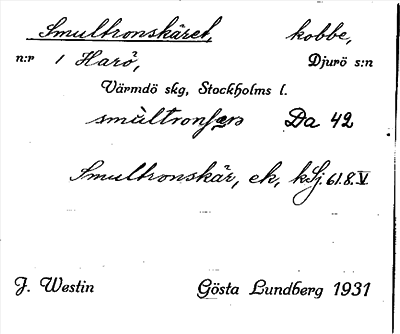 Smultronskäret, kobbe,
n:r 1 Harö, Djurö s:n
Värmdö skg, Stockholms l.
Da 42
Smultronskär, ek, kSj. 61.8.V
J. Westin Gösta Lundberg 1931